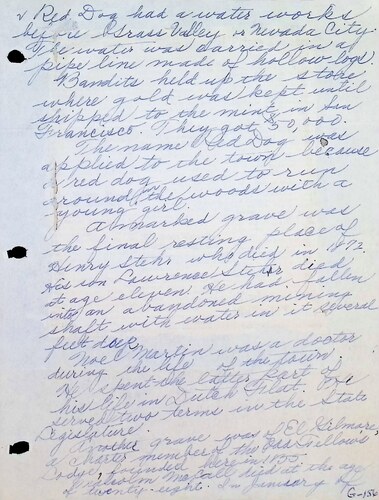 Red Dog had a water works
before Grass Valley or Nevada City.
The water was carried in a
pipe line made of hollow logs.
Bandits held up the store
where gold was kept until
shipped to the mint in San
Francisco. They got $50,000.
The name Red Dog was
applied to the town because
a red dog used to run
around the woods with a
young girl.
A marked grave was
the final resting place of
Henry Stehr who died in 1872.
His son Lawrence Stehr died
at age eleven. He had fallen
into an abandoned mining
shaft with water in it several
feet deep.
Noel Martin was a doctor
during the life of the town.
He spent the latter part of
his life in Dutch Flat. He
served two terms in the State
Legislature.
Another grave was El Gilmore,
a charter member of the Odd Fellows
Lodge founded here in 1855.
Malcolm died at the age
of twenty-eight. In January of
G-156